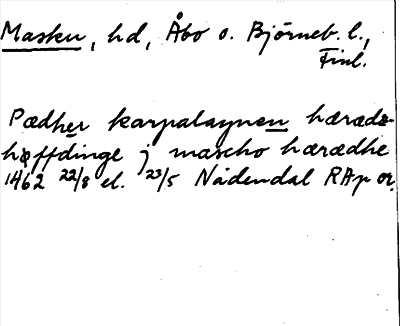 Masku, hd, Åbo o. Björneb. l.,
Finl.
Pædher karpalaynen hæræds-
høffdinge j mascho hærædhe
1462 22/8 el. 23/5 Nådendal RAp or.